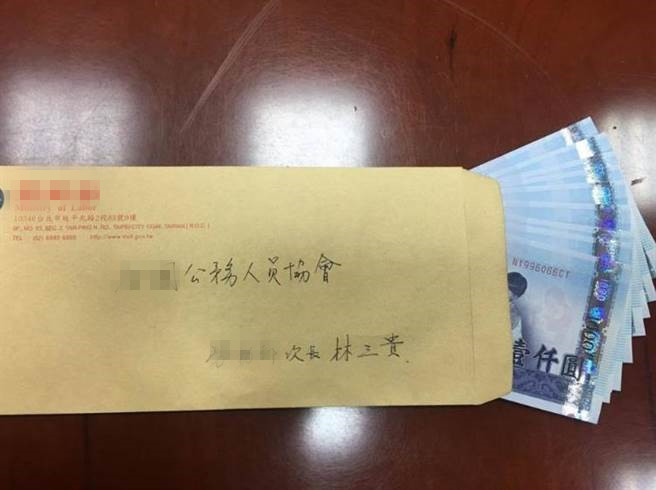 Ministry of Labor
10346台北市延平北路2段83號9樓
9F., NO. 83, SEC. 2, YANPING N. RD., TAIPEI CITY 10346, TAIWAN ( R.O.C )
TEL : (02) 8590 http://www.mol.gov.tw
公務人員協會
次長 林三貴
NY996066CT
壹仟圓